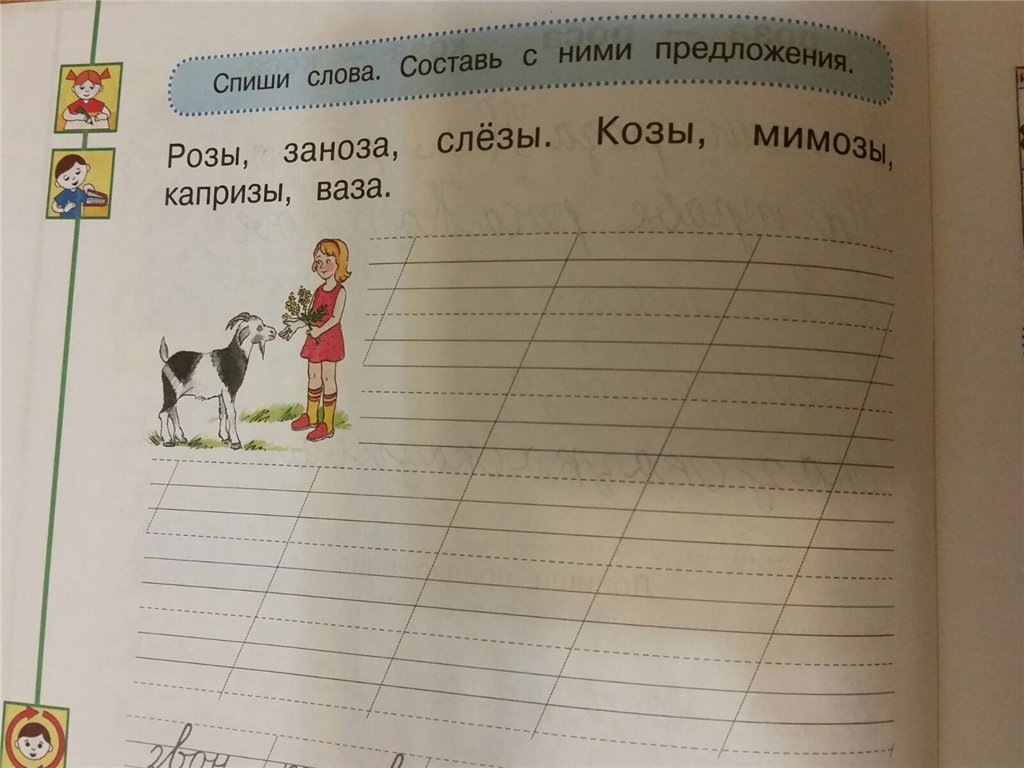 Спиши слова. Составь с ними предложения.
Розы, заноза, слёзы. Козы, мимозы,
капризы, ваза.
звон